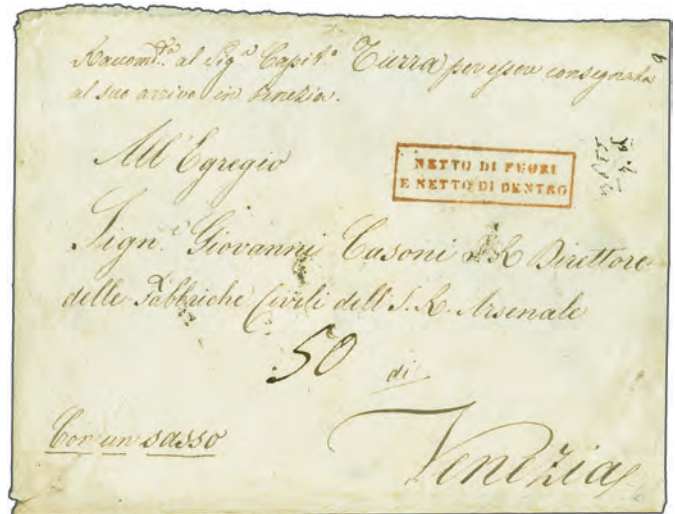 Raccomd.ta al Sig.r Capit.o Turra per esser consegnata
al suo arrivo in Venezia.
All'Egregio
NETTO DI FUORI
E NETTO DI DENTRO
Sign.r Giovanni Casoni I. R. Direttore
delle Fabbriche Civili dell'I. R. Arsenale
50
di
Con un sasso
Venezia